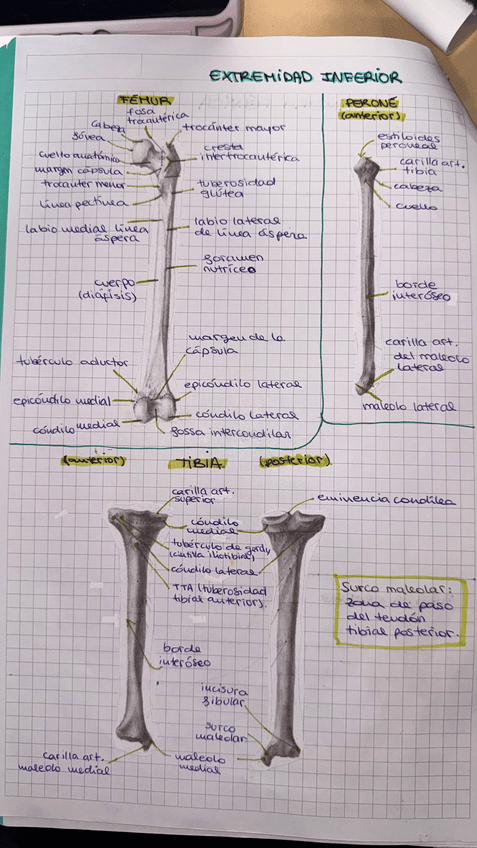 EXTREMIDAD INFERIOR
FÉMUR
fosa
trocantérica
cabeza
fóvea
cuello anatómico
margen cápsula
trocanter menor
línea pectínea
labio medial línea
áspera
cuerpo
(diáfisis)
tubérculo aductor
epicóndilo medial
cóndilo medial
trocánter mayor
cresta
intertrocantérica
tuberosidad
glútea
labio lateral
de línea áspera
foramen
nutríceo
margen de la
cápsula
epicóndilo lateral
cóndilo lateral
fossa intercondilar
PERONÉ
(anterior)
estiloides
peroneal
carilla art.
tibia
cabeza
cuello
borde
interóseo
carilla art.
del maleolo
lateral
maleolo lateral
(anterior)
TIBIA
(posterior)
carilla art.
superior
eminencia condílea
cóndilo
medial
tubérculo de gerdy
(cintilla iliotibial)
cóndilo lateral
TTA (tuberosidad
tibial anterior).
borde
interóseo
incisura
fibular
surco
maleolar
carilla art.
maleolo medial
maleolo
medial
Surco maleolar:
zona de paso
del tendón
tibial posterior.